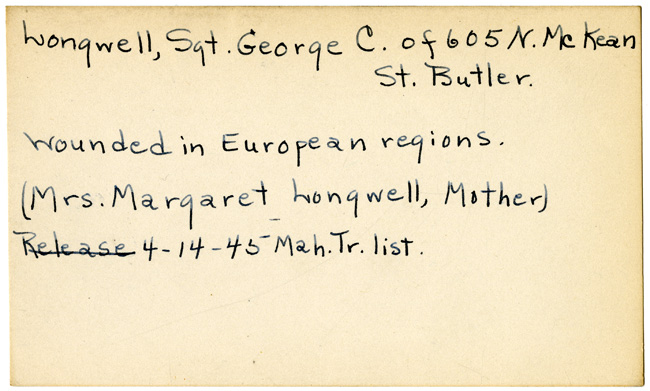 Longwell, Sgt. George C. of 605 N. McKean
St. Butler.
Wounded in European regions.
(Mrs. Margaret Longwell, Mother)
Release 4-14-45 Mah. Tr. list.